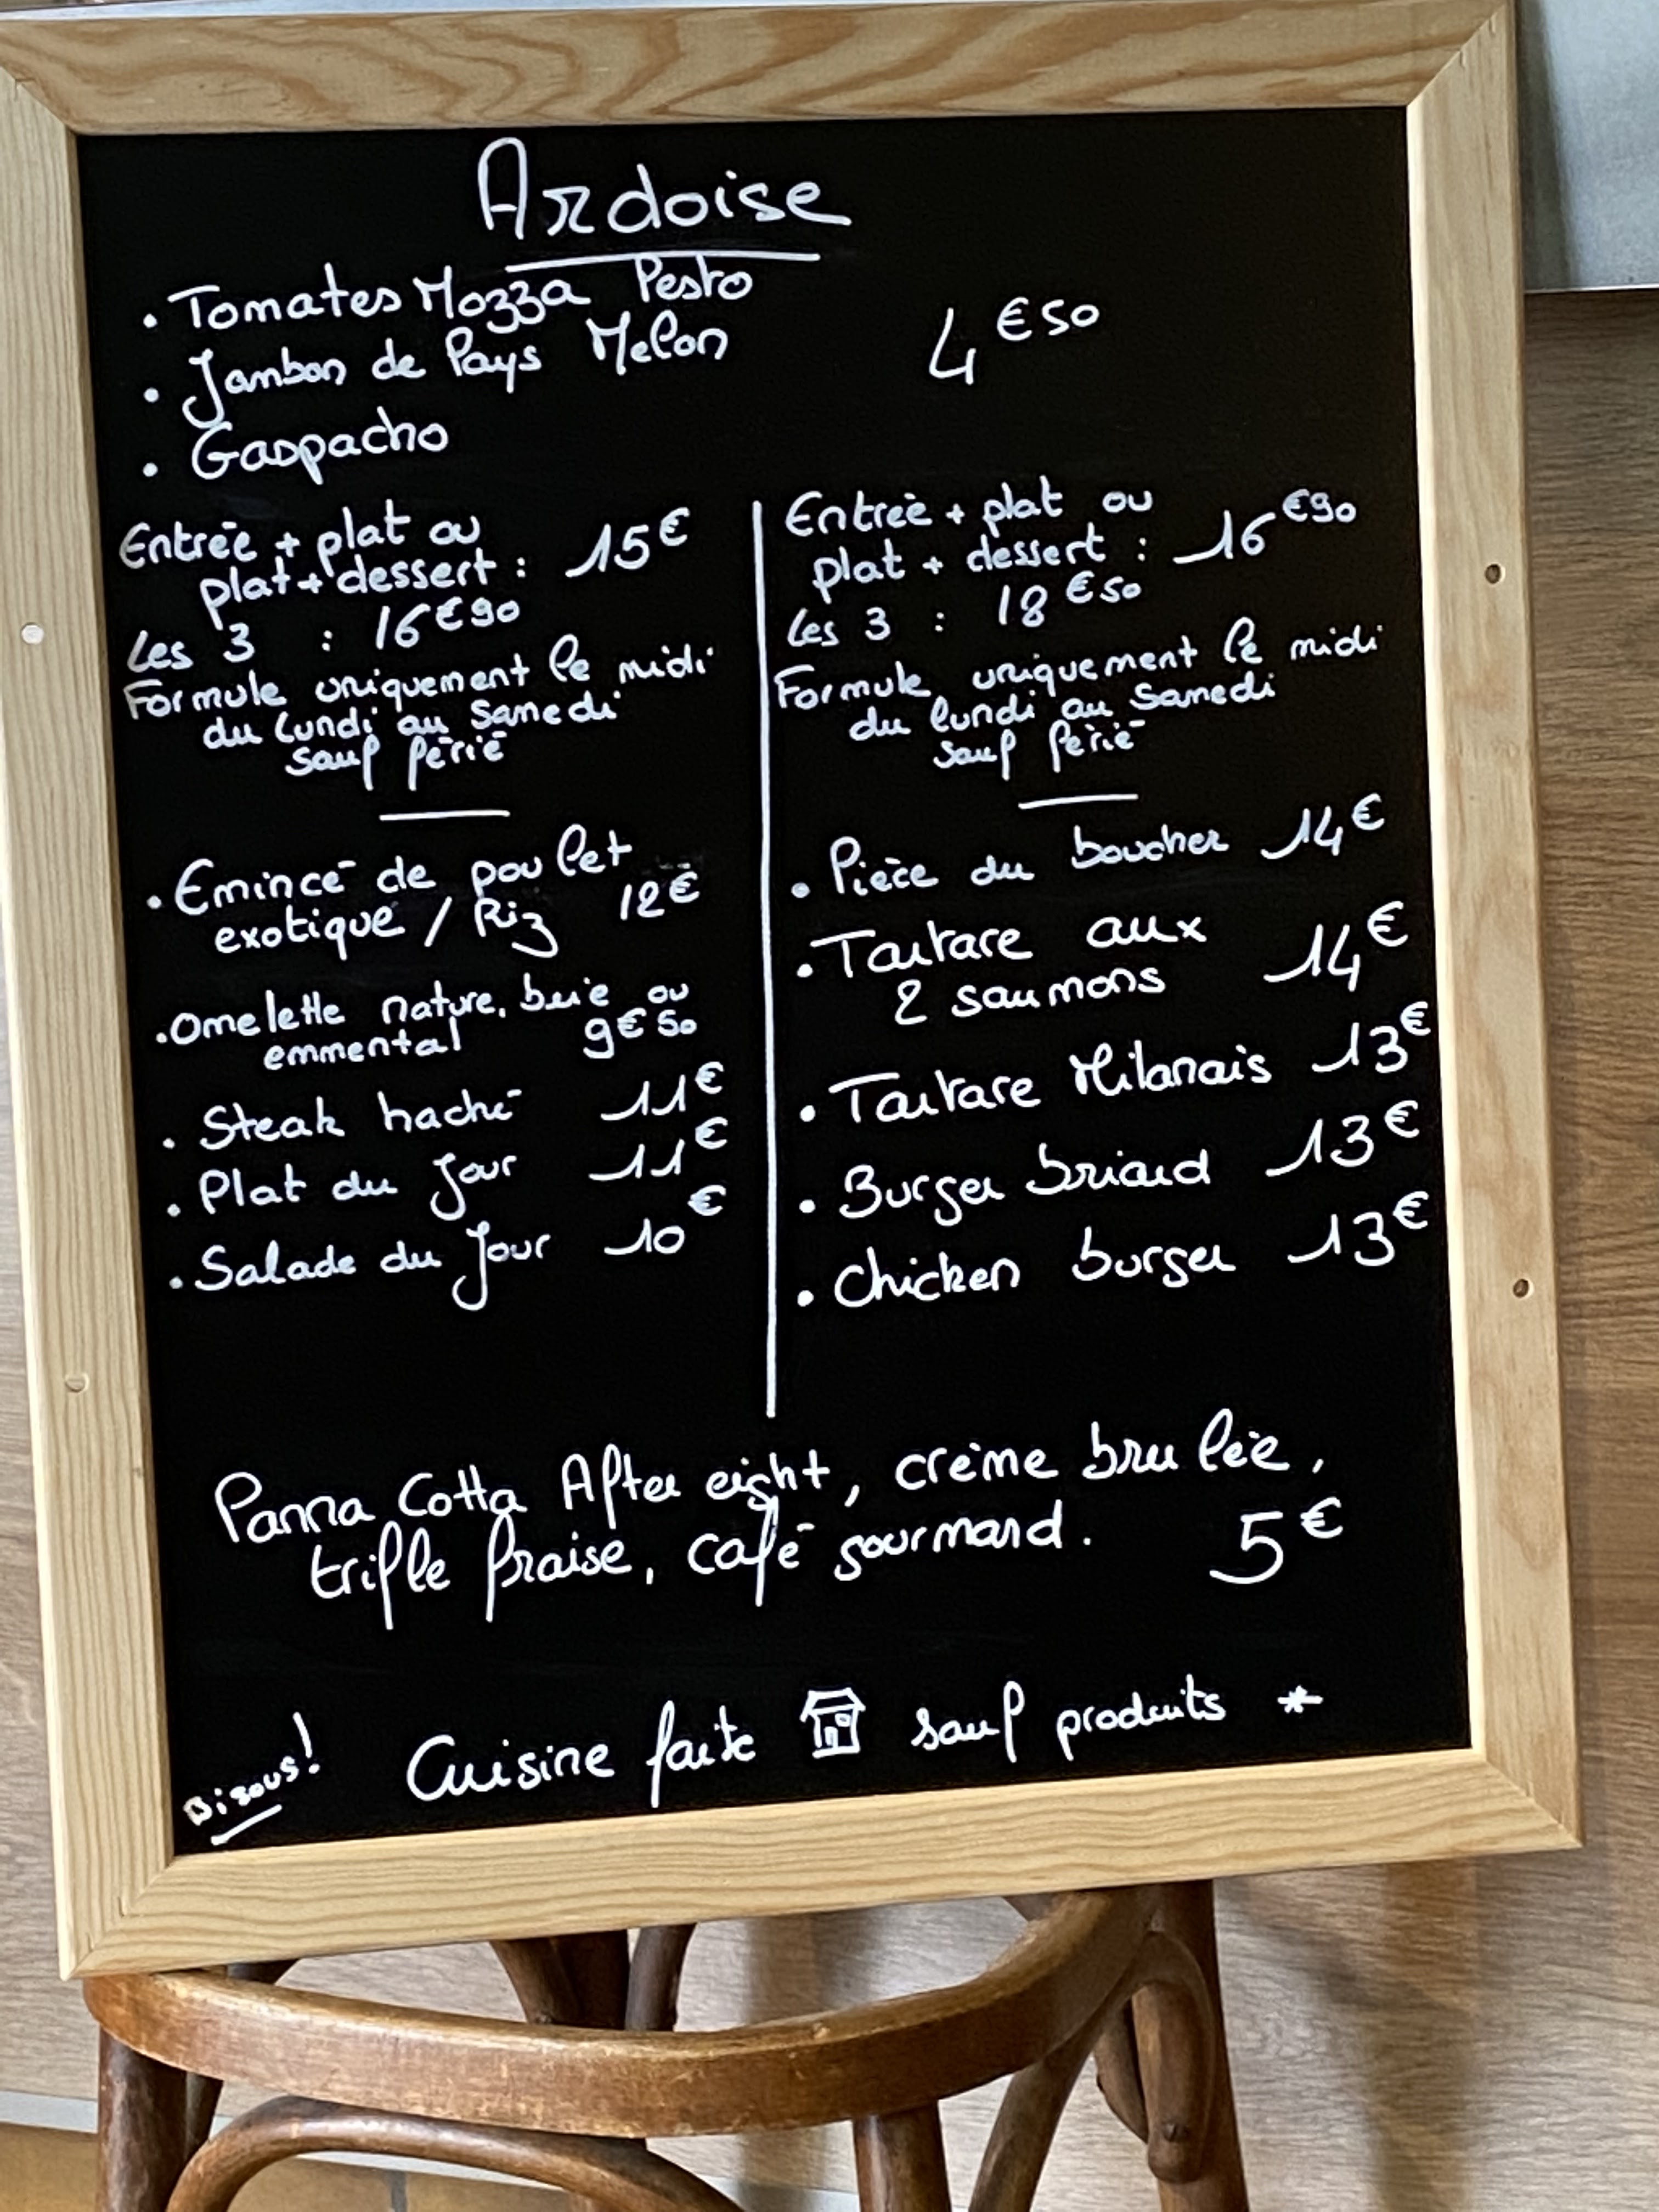 Ardoise
• Tomates Mozza Pesto
• Jambon de Pays Melon
4€50
• Gaspacho
Entrée + plat ou
plat + dessert : 15€
Les 3 : 16€90
Formule uniquement le midi
du Lundi au Samedi
sauf férié
• Emincé de poulet
exotique / Riz 12€
• Omelette nature, brie ou
emmental 9€50
• Steak haché 11€
• Plat du Jour 11€
• Salade du Jour 10€
Entrée + plat ou
plat + dessert : 16€90
Les 3 : 18€50
Formule uniquement le midi
du lundi au Samedi
sauf férié
• Pièce du boucher 14€
• Tartare aux
2 saumons 14€
• Tartare Milanais 13€
• Burger briard 13€
• Chicken burger 13€
Panna Cotta After eight, crème brulée,
trifle fraise, café gourmand. 5€
Bisous!
Cuisine faite sauf produits *